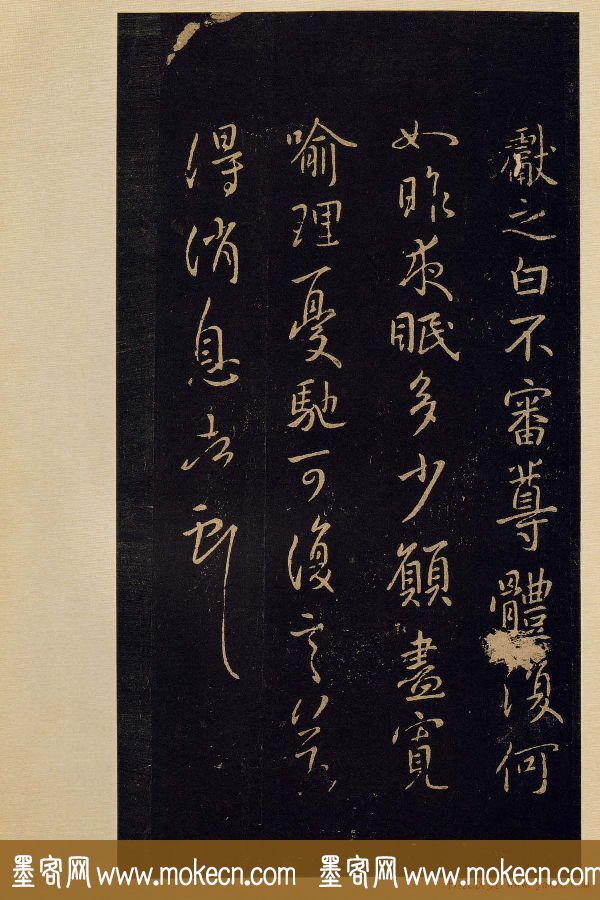 獻之白不審尊體復何
如昨夜眠多少願盡寬
喻理憂馳可復言
得消息
墨客网www.mokecn.com 墨客网www.mokecn.com